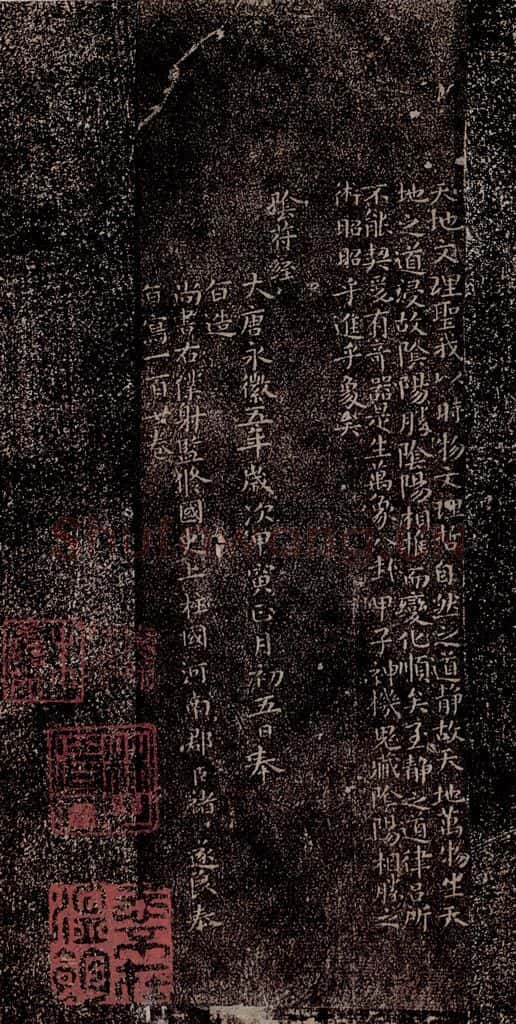 天地文理聖我以時物文理哲自然之道靜故天地萬物生天
地之道浸故陰陽勝陰陽相推而變化順矣至靜之道律呂所
不能契爰有奇器是生萬象八卦甲子神機鬼藏陰陽相勝之
術昭昭乎進乎象矣
陰符經
大唐永徽五年歲次甲寅正月初五日奉
旨造
尚書右僕射監修國史上柱國河南郡臣褚遂良奉
旨寫一百廿卷